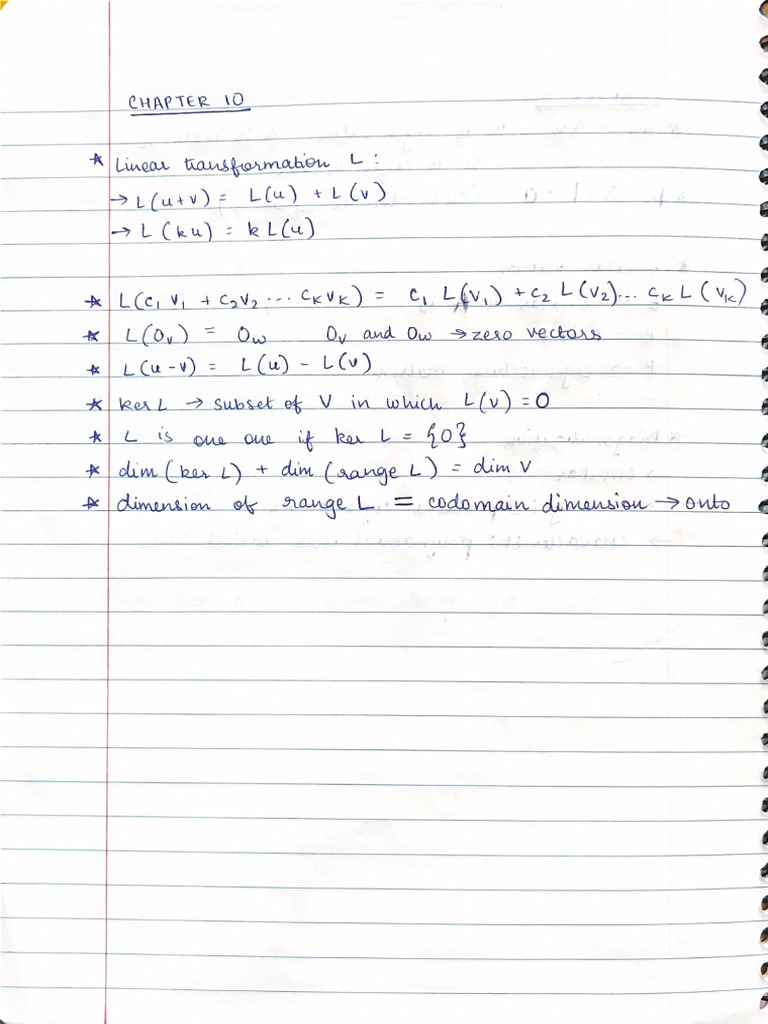 CHAPTER 10
* Linear transformation L :
→ L(u+v) = L(u) + L(v)
→ L (ku) = k L(u)
* L(c₁ v₁ + c₂v₂ ... cₖvₖ) = c₁ L(v₁) + c₂ L(v₂)... cₖ L (vₖ)
* L(0ᵥ) = 0w 0ᵥ and 0w → zero vectors
* L(u-v) = L(u) - L(v)
* ker L → subset of V in which L(v) = 0
* L is one one if ker L = {0}
* dim(ker L) + dim (range L) = dim V
* dimension of range L = codomain dimension → onto